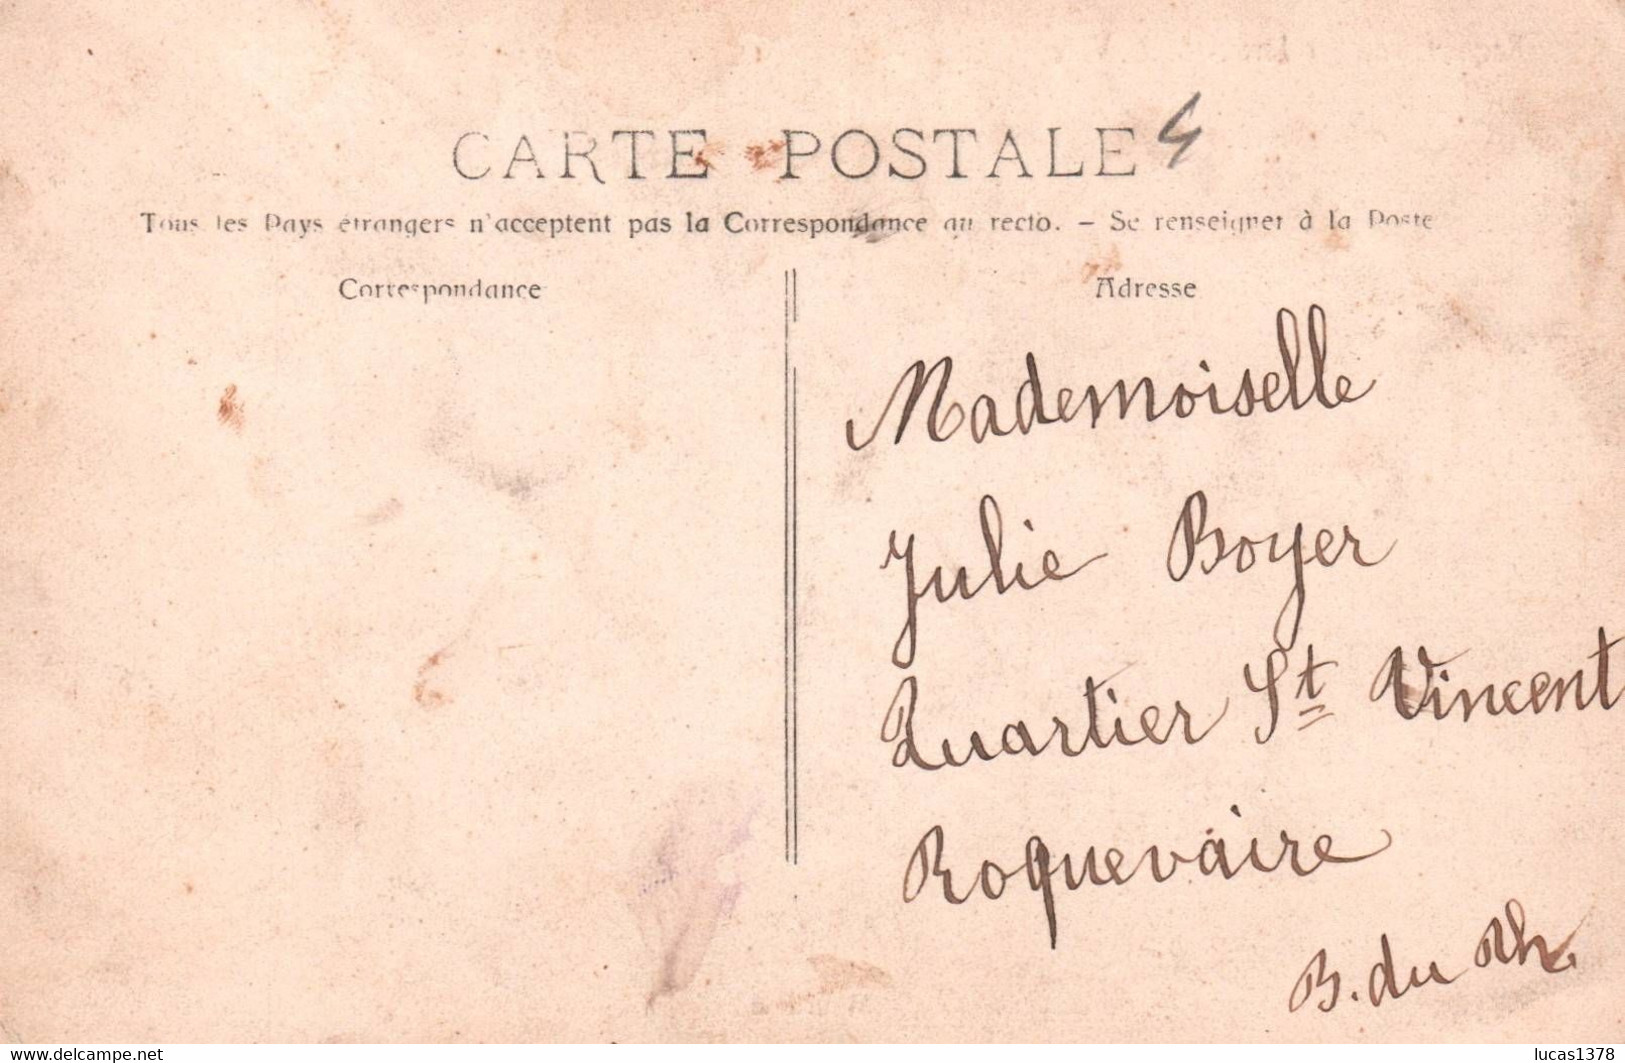 CARTE POSTALE 4
Tous les Pays étrangers n'acceptent pas la Correspondance au recto. – Se renseigner à la Poste
Correspondance
Adresse
Mademoiselle
Julie Boyer
Quartier St Vincent
Roquevaire
B. du Rh
www.delcampe.net
lucas1378